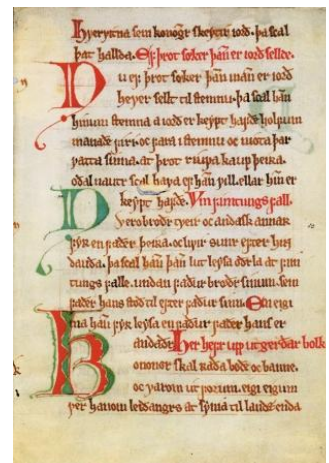 hvervitna sem konongr skeytir iord. þa scal
þat hallda. Ef þrot søker þan er iord sellde.
Nu ef þrot søker þan man er iord
hever sellt til stemnu. þa scal han
hinum stemna a iord er keypt hafde holfum
manade firi. oc fara i stemnu oc niota þar
vatta sinna. at þrot rufa kaup þeira.
odal nautr scal hava ef han vill. ellar hin er
keypt hafde. Um fimtungs fall.
ero brodr tveir oc andask annar
fyr en fader þeira. oc livir sunr efter hin
dauda. þa scal han þan lut leysa odrla at fim
tungs falle. undan fadur brodr sinum. sem
fader hans stod til efter fadur sinn. En eigi
ma han fyr leysa en fadur fader hans er
andadr. Her hefr upp utgerdar bolk
skal rada bode oc banne.
oc varom utforum. eigi eigum
ver hanom leidangrs at synia til landz enda